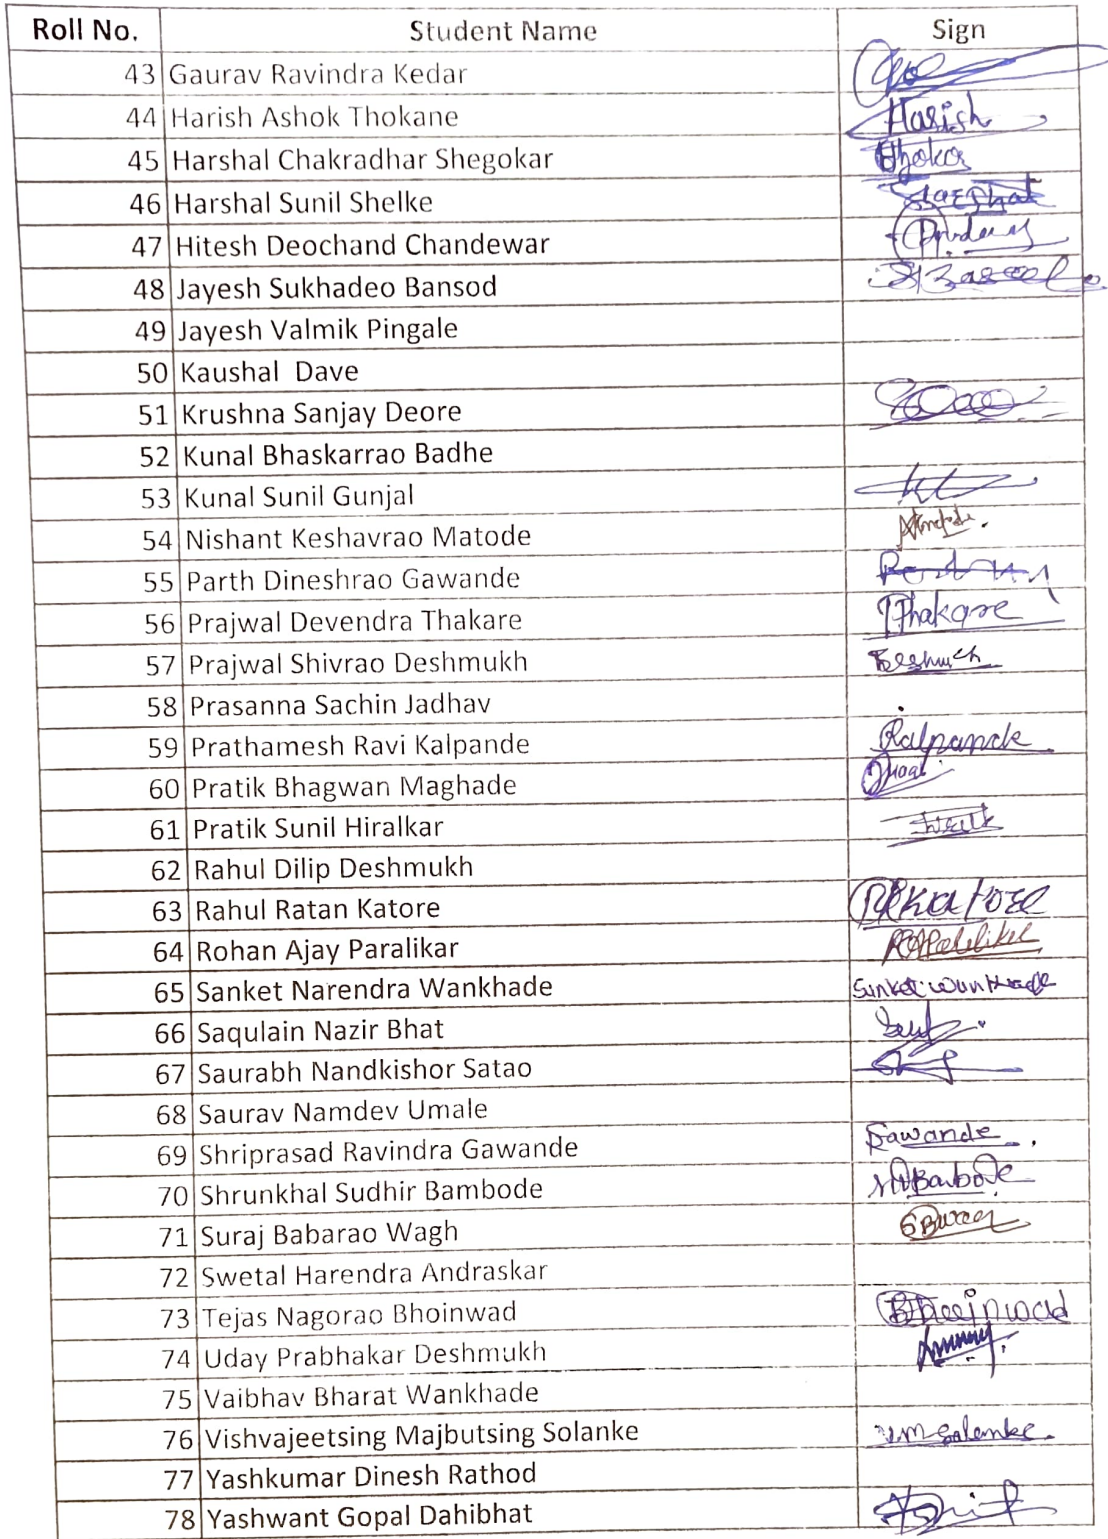 Roll No. Student Name Sign
43 Gaurav Ravindra Kedar
44 Harish Ashok Thokane Harish
45 Harshal Chakradhar Shegokar
46 Harshal Sunil Shelke
47 Hitesh Deochand Chandewar
48 Jayesh Sukhadeo Bansod
49 Jayesh Valmik Pingale
50 Kaushal Dave
51 Krushna Sanjay Deore
52 Kunal Bhaskarrao Badhe
53 Kunal Sunil Gunjal
54 Nishant Keshavrao Matode
55 Parth Dineshrao Gawande
56 Prajwal Devendra Thakare PThakare
57 Prajwal Shivrao Deshmukh
58 Prasanna Sachin Jadhav
59 Prathamesh Ravi Kalpande
60 Pratik Bhagwan Maghade
61 Pratik Sunil Hiralkar
62 Rahul Dilip Deshmukh
63 Rahul Ratan Katore
64 Rohan Ajay Paralikar
65 Sanket Narendra Wankhade
66 Saqulain Nazir Bhat
67 Saurabh Nandkishor Satao
68 Saurav Namdev Umale
69 Shriprasad Ravindra Gawande
70 Shrunkhal Sudhir Bambode
71 Suraj Babarao Wagh
72 Swetal Harendra Andraskar
73 Tejas Nagorao Bhoinwad
74 Uday Prabhakar Deshmukh
75 Vaibhav Bharat Wankhade
76 Vishvajeetsing Majbutsing Solanke
77 Yashkumar Dinesh Rathod
78 Yashwant Gopal Dahibhat